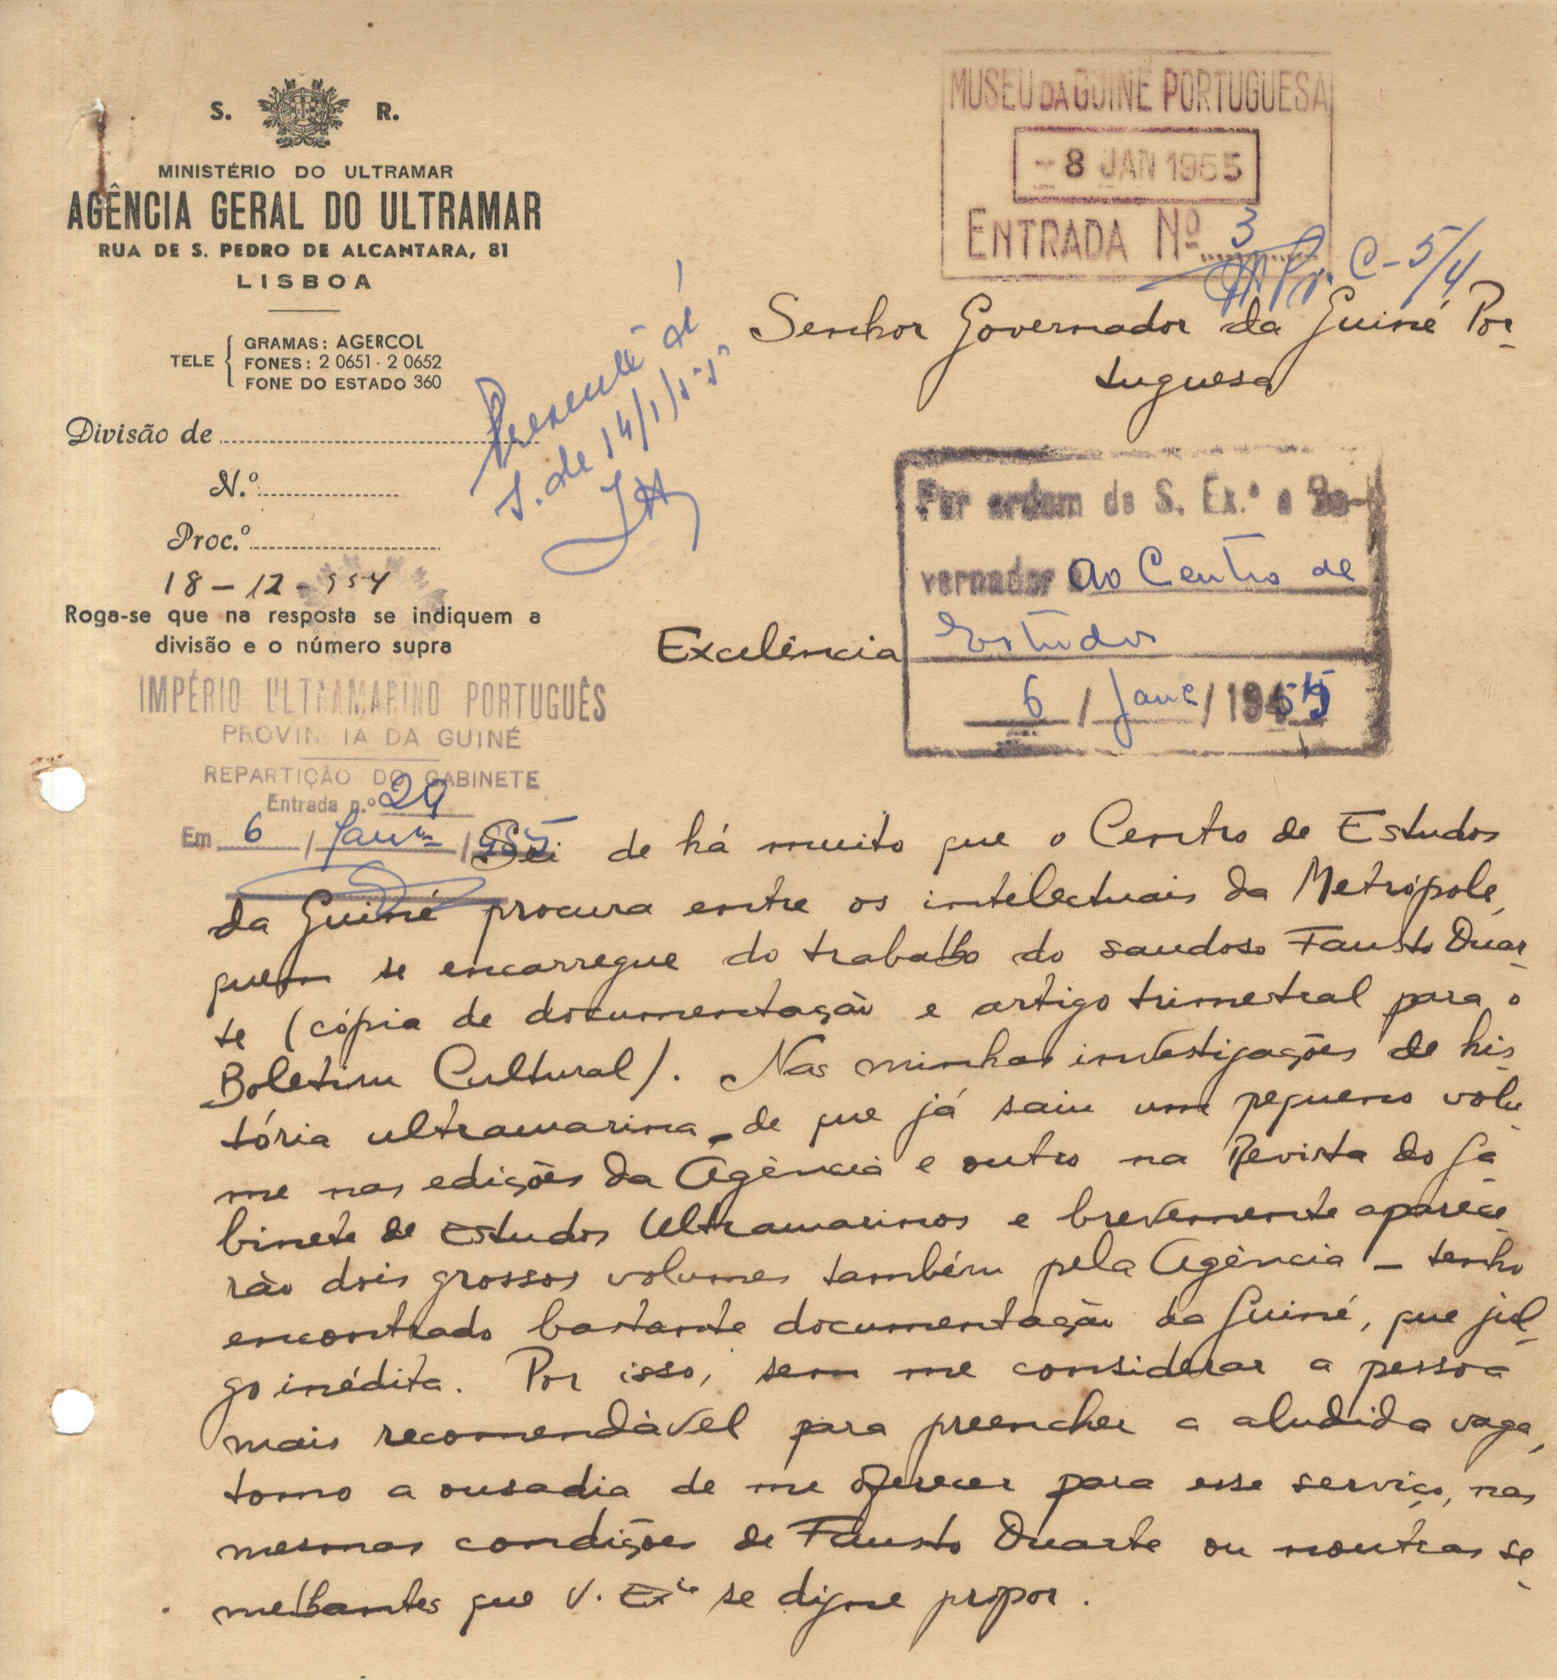 S. R.
MINISTÉRIO DO ULTRAMAR
AGÊNCIA GERAL DO ULTRAMAR
RUA DE S. PEDRO DE ALCANTARA, 81
LISBOA
TELE
GRAMAS: AGERCOL
FONES: 2 0651 - 2 0652
FONE DO ESTADO 360
Divisão de
N.º
Proc.º
18-12-954
Roga-se que na resposta se indiquem a
divisão e o número supra
MUSEU DA GUINÉ PORTUGUESA
-8 JAN 1955
ENTRADA Nº 3
C-5/4
Presente à
S. de 14/1/55
Senhor Governador da Guiné Por-
tuguesa
Por ordem de S. Ex.ª o Go-
vernador ao Centro de
Estudos
6 / Janº / 1955
Excelência
IMPÉRIO ULTRAMARINO PORTUGUÊS
PROVINCIA DA GUINÉ
REPARTIÇÃO DO GABINETE
Entrada n.º 29
Em 6 / Janrº / 955
Sei de há muito que o Centro de Estudos
da Guiné procura entre os intelectuais da Metrópole,
quem se encarregue do trabalho do saudoso Fausto Duar-
te (cópia de documentação e artigo trimestral para o
Boletim Cultural). Nas minhas investigações de his-
tória ultramarina - de que já saiu um pequeno volu-
me nas edições da Agência e outro na Revista do Ga-
binete de Estudos Ultramarinos e brevemente aparece-
rão dois grossos volumes também pela Agência - tenho
encontrado bastante documentação da Guiné, que jul-
go inédita. Por isso, sem me considerar a pessoa
mais recomendável para preencher a aludida vaga,
tomo a ousadia de me oferecer para esse serviço, nas
mesmas condições de Fausto Duarte ou noutras se-
melhantes que V. Exª se digne propor.